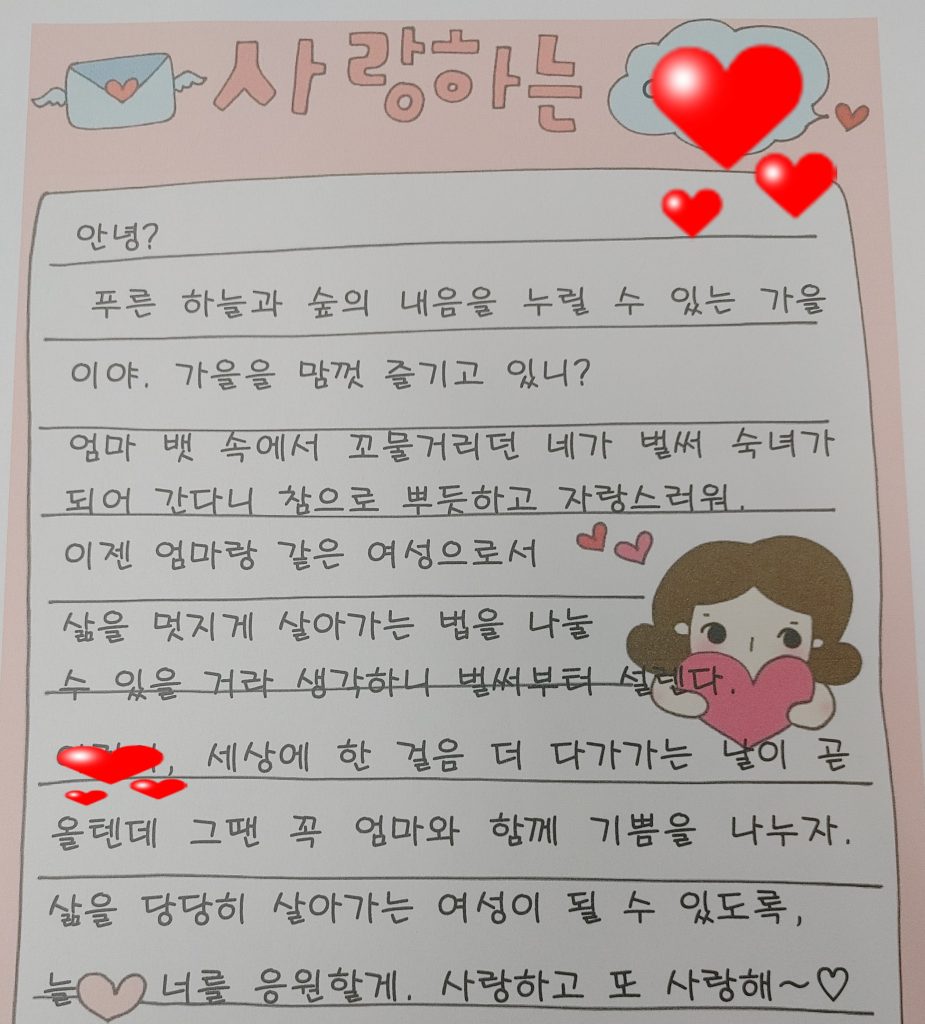 사랑하는
안녕?
푸른 하늘과 숲의 내음을 누릴 수 있는 가을
이야. 가을을 맘껏 즐기고 있니?
엄마 뱃 속에서 꼬물거리던 네가 벌써 숙녀가
되어 간다니 참으로 뿌듯하고 자랑스러워.
이젠 엄마랑 같은 여성으로서
삶을 멋지게 살아가는 법을 나눌
수 있을 거라 생각하니 벌써부터 설렌다.
, 세상에 한 걸음 더 다가가는 날이 곧
올텐데 그땐 꼭 엄마와 함께 기쁨을 나누자.
삶을 당당히 살아가는 여성이 될 수 있도록,
늘 너를 응원할게. 사랑하고 또 사랑해~♡